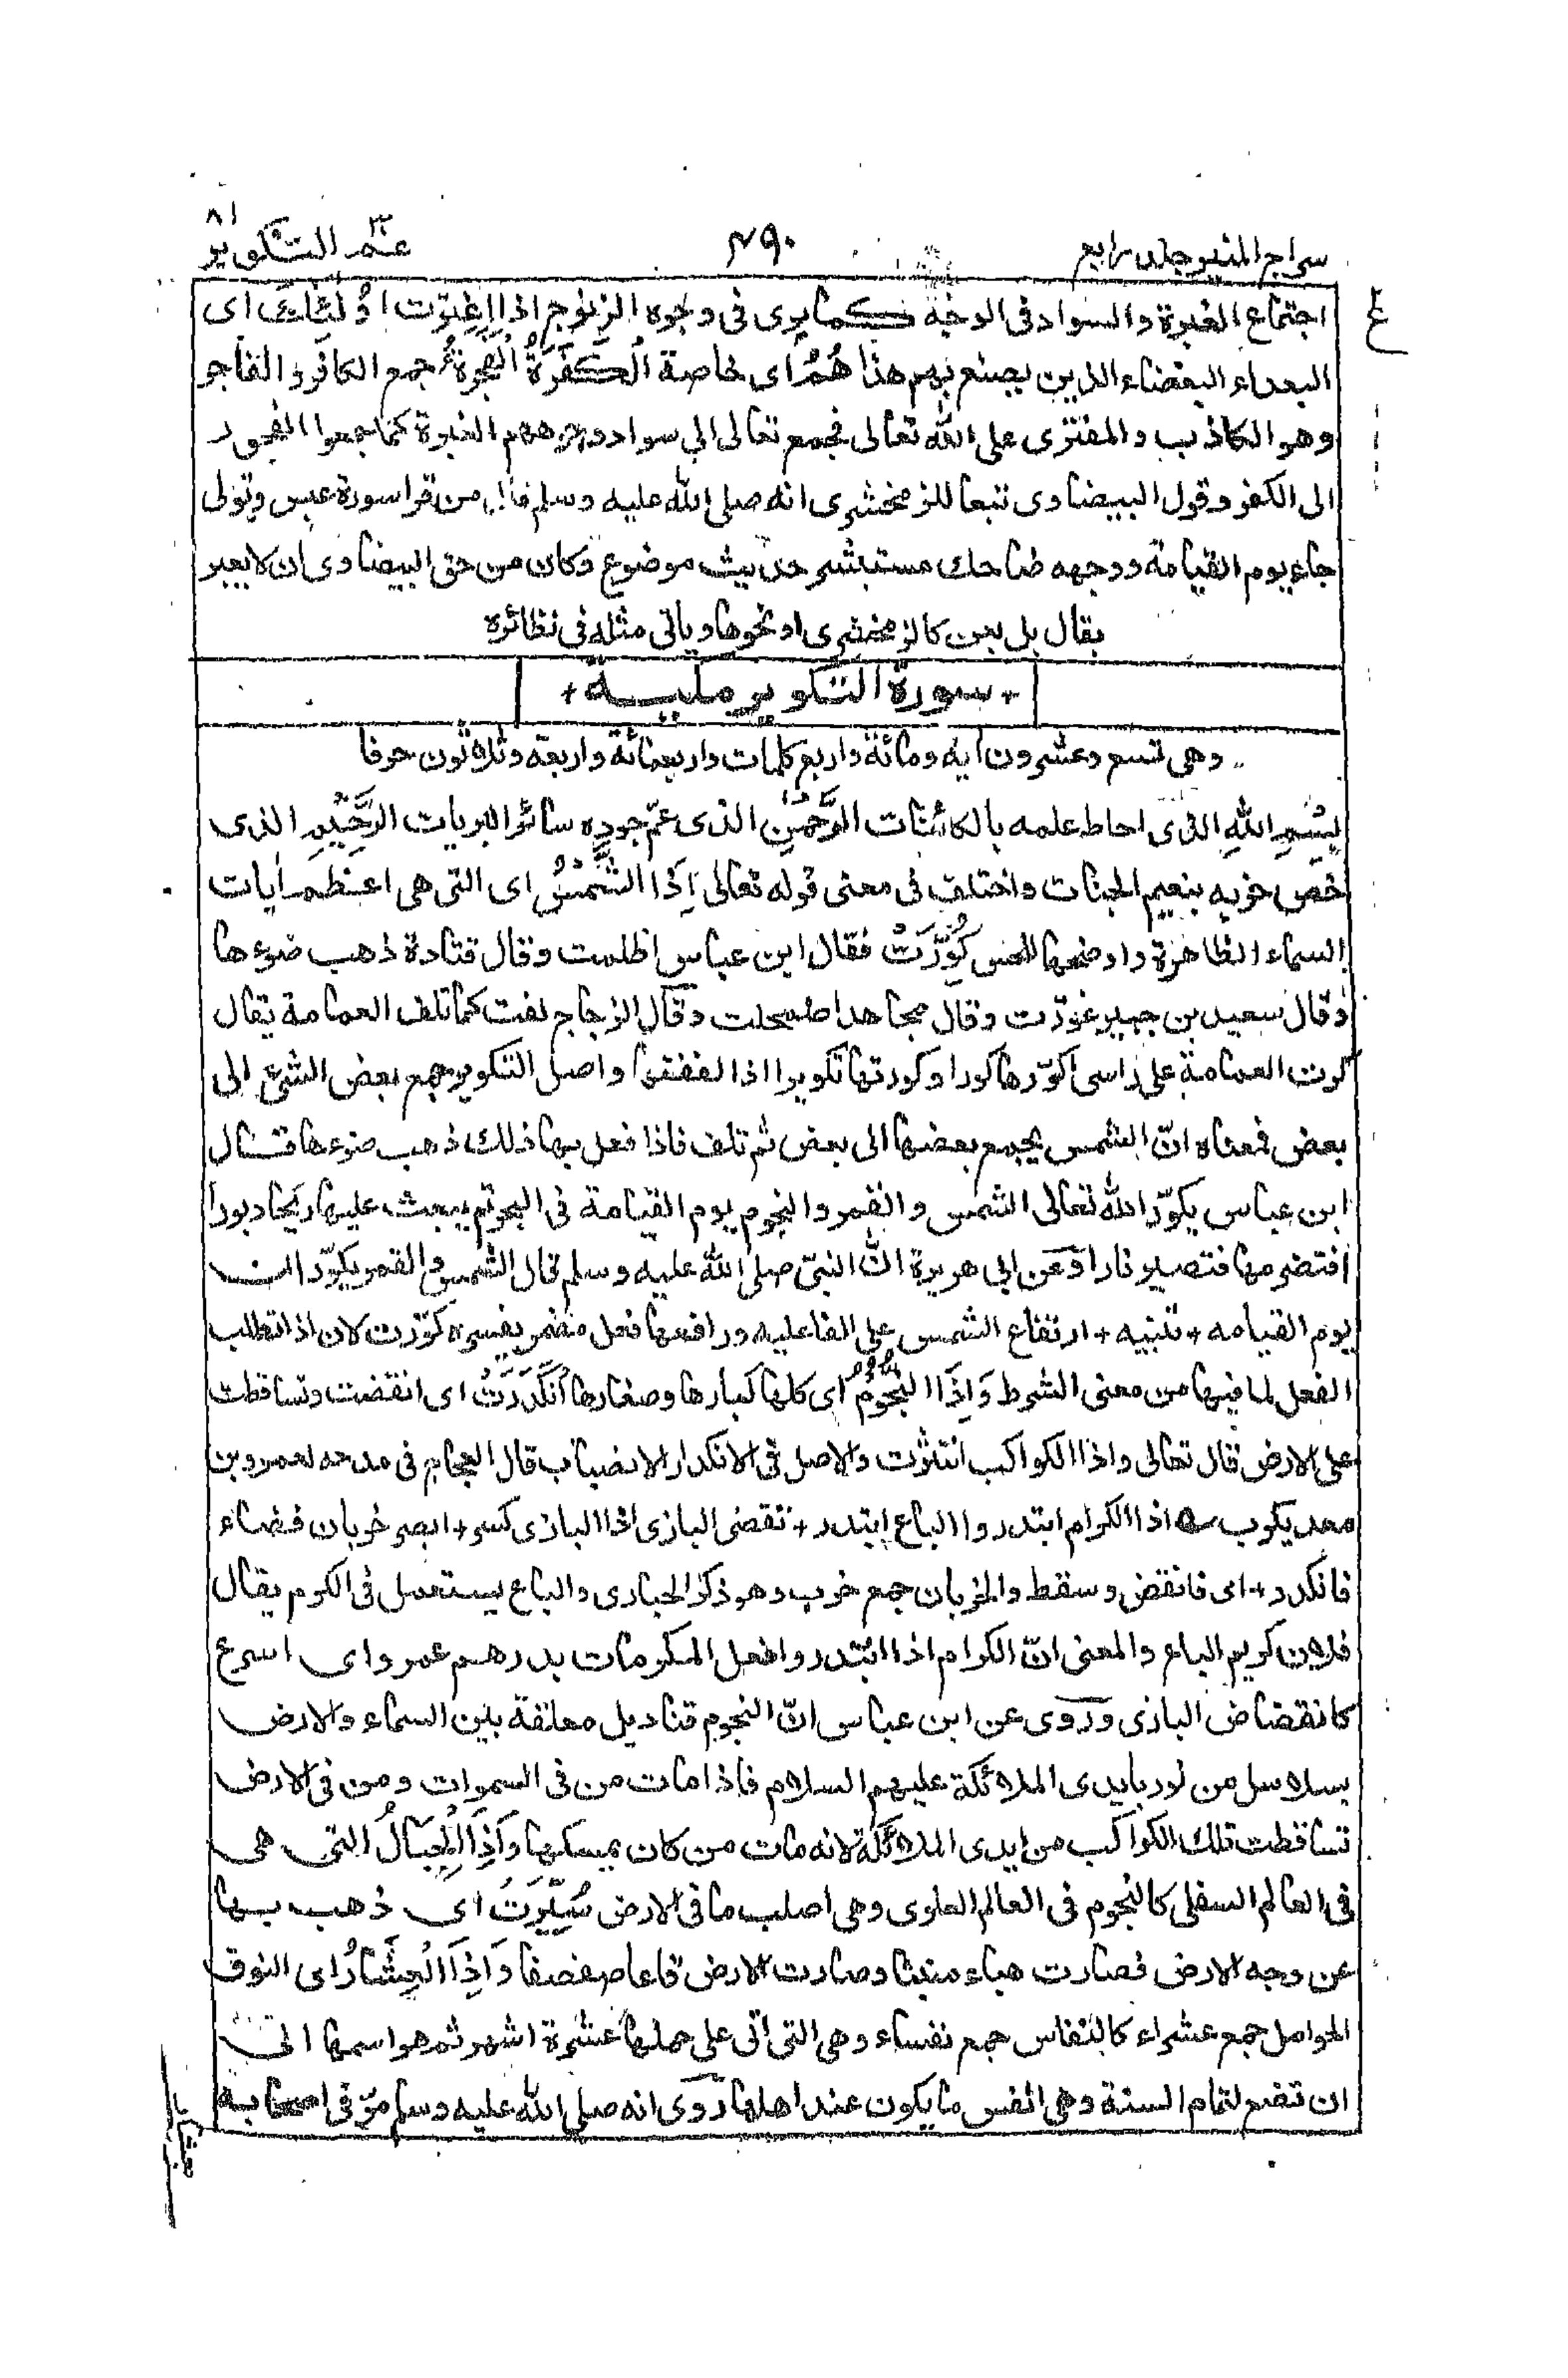 سراج المنير جلد رابع ٤٩٠ عمّ ٣٠ التكوير ٨١
اجتماع الغبرة والسواد فى الوجه كما يرى فى وجوه الزنوج اذا اغبرّت اُولٰئِكَ اى
البعداء البغضاء الذين يصنع بهم هذا هُمُ اى خاصة الْكَفَرَةُ الْفَجَرَةُ جمع الكافر والفاجر
وهو الكاذب والمفترى على الله تعالى فجمع تعالى الى سواد وجوههم الغبرة كما جمعوا الفجور
الى الكفر وقول البيضاوى تبعا للزمخشرى انه صلى الله عليه وسلم قال من قرا سورة عبس وتولى
جاء يوم القيامة ووجهه ضاحك مستبشر حديث موضوع وكان من حق البيضاوى ان لا يعبر
بقال بل بعن كالزمخشرى او نحوها ويأتى مثله فى نظائره
+ سورة التكوير مكية +
وهى تسع وعشرون اٰية ومائة واربع كلمات واربعمائة واربعة وثلاثون حرفا
بِسْمِ اللهِ الذى احاط علمه بالكائنات الرَّحْمٰنِ الذى عمّ جوده سائر البريات الرَّحِيْمِ الذى
خص حزبه بنعيم الجنات واختلف فى معنى قوله تعالى اِذَا الشَّمْسُ اى التى هى اعظم اٰيات
السماء الظاهرة واوضحها للحس كُوِّرَتْ فقال ابن عباس اظلمت وقال قتادة ذهب ضوءها
وقال سعيد بن جبير غوّرت وقال مجاهد اضمحلت وقال الزجاج لفت كما تلف العمامة يقال
كرت العمامة على راسى اكوّرها كورا وكورتها تكويرا اذا لففتها واصل التكوير جمع بعض الشئ الى
بعض فمعناه انّ الشمس يجمع بعضها الى بعض ثم تلف فاذا فعل بها ذلك ذهب ضوءها قال
ابن عباس يكوّر الله تعالى الشمس والقمر والنجوم يوم القيامة فى البحر ثم يبعث عليها ريحا دبورا
فتضر مها فتصير نارا وعن ابى هريرة انّ النبىّ صلى الله عليه وسلم قال الشمس والقمر يكوّران
يوم القيامه + تنبيه + ارتفاع الشمس على الفاعليه ورافعها فعل مضمر يفسره كوّرت لان اذا تطلب
الفعل لما فيها من معنى الشرط وَاِذَا النُّجُوْمُ اى كلها كبارها وصغارها انْكَدَرَتْ اى انقضت وتساقطت
على الارض قال تعالى واذا الكواكب انتثرت والاصل فى الانكدار الانصباب قال العجاج فى مدحه لعمرو بن
معديكوب اذا الكرام ابتدروا الباع ابتدر + تقضى البازى اذا البازى كسر + ابصر خربان فضاء
فانكدر + اى فانقض وسقط والخربان جمع خرب وهو ذكر الحبارى والباع يستعمل فى الكرم يقال
فلان كريم الباع والمعنى انّ الكرام اذا ابتدروا فعل المكرمات بدرهم عمرو اى اسرع
كانقضاض البازى وروى عن ابن عباس انّ النجوم قناديل معلقة بين السماء والارض
بسلاسل من نور بايدى الملائكة عليهم السلام فاذا مات من فى السموات ومن فى الارض
تساقطت تلك الكواكب من ايدى الملائكة لانه مات من كان يمسكها وَاِذَا الْجِبَالُ التى هى
فى العالم السفلى كالنجوم فى العالم العلوى وهى اصلب ما فى الارض سُيِّرَتْ اى ذهب بها
عن وجه الارض فصارت هباء منبثا وصارت الارض قاعا صفصفا وَاِذَا الْعِشَارُ اى النوق
الحوامل جمع عشراء كالنفاس جمع نفساء وهى التى اتى على حملها عشرة اشهر ثم هو اسمها الى
ان تضع لتمام السنة وهى انفس ما يكون عند اهلها روى انه صلى الله عليه وسلم مرّ فى اصحابه